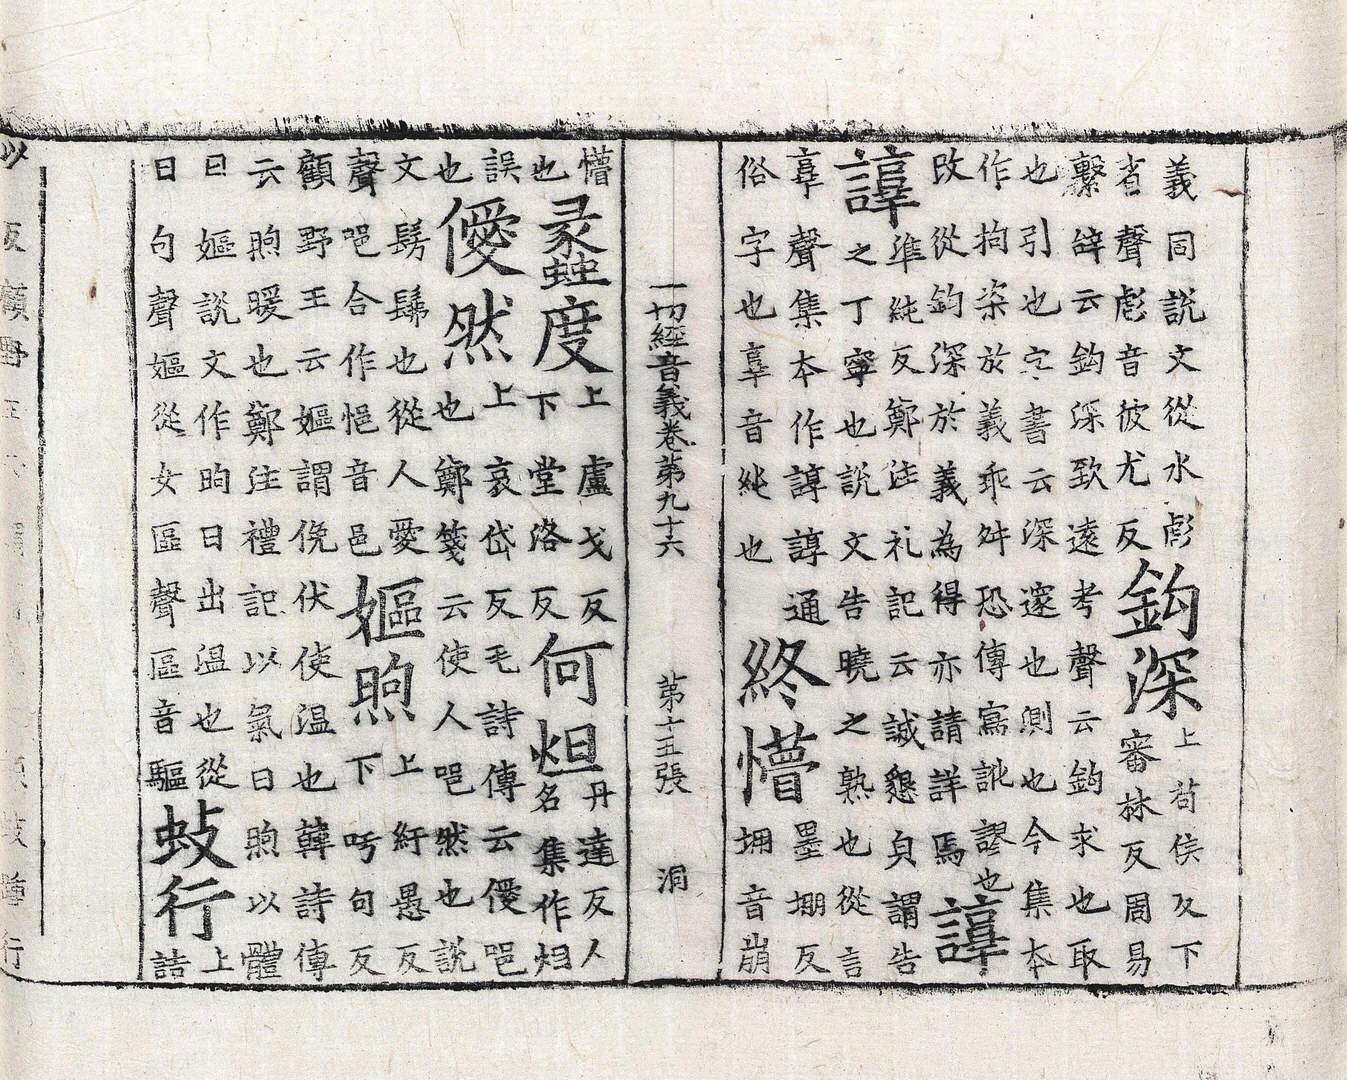 義同說文從水彪
省聲彪音彼尤反鈎深上苟侯反下審林反周易
繫辝云鈎深致遠考聲云鈎求也取
也引也字書云深邃也測也今集本
作拘柒於義乖舛恐傳寫訛謬也
改從鈎深於義為得亦請詳焉諄諄
準純反鄭注礼記云誠懇皃謂告
之丁寧也說文告曉之熟也從言
𦎫聲集本作諄諄通
俗字也𦎫音純也終懵堋墨堋反堋音崩
一切經音義卷第九十六 第十五張 洞
懵也蠡度上盧戈反下堂洛反何炟丹達反人名集作炟
誤也僾然上哀岱反毛詩傳云僾唈也鄭箋云使人唈然也說
文髣髴也從人愛聲唈合作悒音邑嫗煦上紆愚反下吁句反
顧野王云嫗謂俛伏使温也韓詩傳
云煦暖也鄭注禮記以氣曰煦以體
曰嫗說文作昫日出温也從
日句聲嫗從女區聲區音驅蚑行上詰